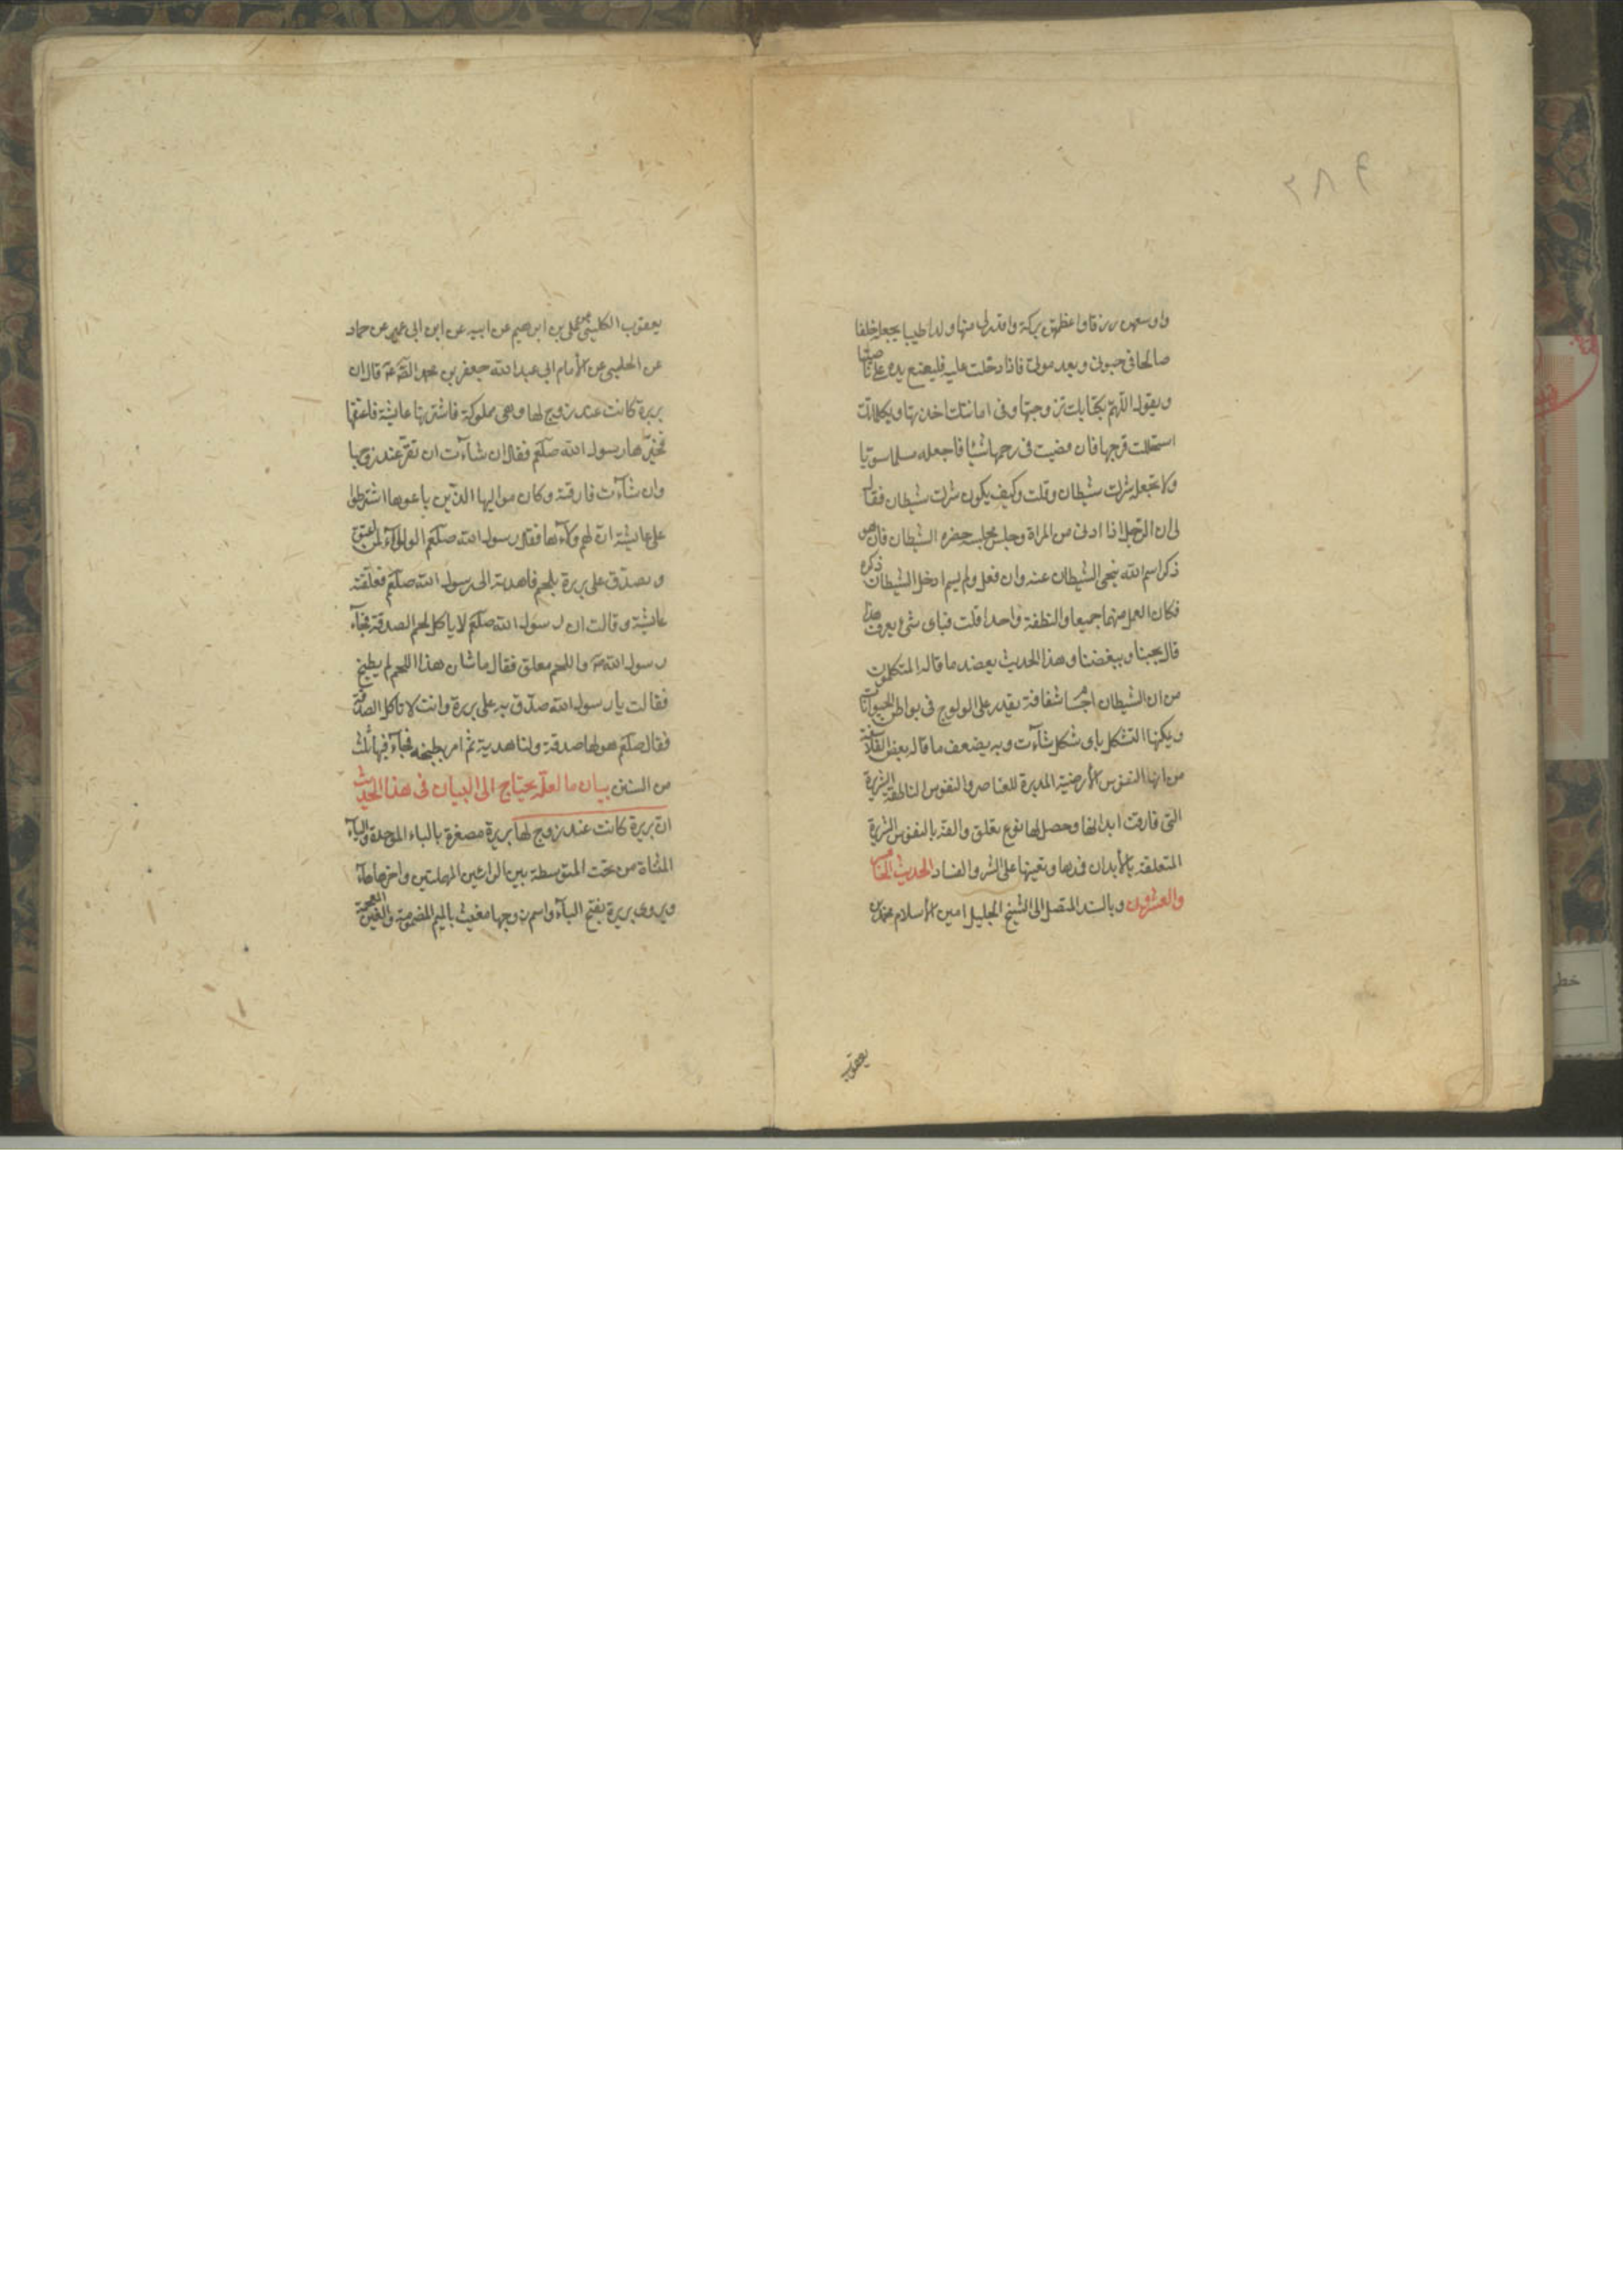 ٢٨٤
واوسعهن رزقا واعظمهن بركة واقدر لى منها ولدا طيبا يجعله خلفا
صالحا فى حيوتى وبعد موتى فاذا دخلت عليه فليضع يده على ناصيتها
ويقول اللهم بكتابك تزوجتها وفى امانتك اخذتها وبكلماتك
استحللت فرجها فان قضيت فى رحمها شيئا فاجعله مسلما سويّا
ولا تجعله شرك شيطان وقلت وكيف يكون شرك شيطان فقال
لى ان الرّجل اذا ادنى من المراة وجلس مجلسه حضره الشيطان فان هو
ذكر اسم الله تنحى الشيطان عنه وان فعل ولم يسم ادخل الشيطان ذكره
فكان العمل منهما جميعا والنطفة واحدا قلت فباى شىء يعرف هذا
قال بحبنا وببغضنا وهذا الحديث يعضد ما قاله المتكلمون
من ان الشيطان اجسا شفافة يقدر على الولوج فى بواطن الحيوانات
ويمكنها التشكل باى شكل شآءت وبه يضعف ما قاله بعض الفلاسفة
من انها النفوس الأرضية المدبرة للعناصر والنفوس الناطقة الشريرة
التى فارقت ابدانها وحصل لها نوع تعلق والفة بالنفوس الشريرة
المتعلقة بالأبدان فتدها وتعينها على الشر والفساد الحديث الخامس
والعشرون وبالسند المتصل الى الشيخ الجليل امين الأسلام محمد بن
يعقوب
يعقوب الكلينى عن على بن ابرهيم عن ابيه عن ابن ابى عمير عن حماد
عن الحلبى عن الأمام ابى عبد الله جعفر بن محمد الصادق ع قال ان
بريرة كانت عند زوج لها وهى مملوكة فاشترتها عايشة فاعتقتها
فخيّرها رسول الله صلعم فقال ان شآءت ان تقرّ عند زوجها
وان شآءت فارقته وكان مواليها الذّين باعوها اشترطوا
على عايشة انّ لهم ولآءها فقال رسول الله صلعم الولآء لمن اعتق
وتصدّق على بريرة بلحم فاهدته الى رسول الله صلعم فعلقته
عايشة وقالت ان رسول الله صلعم لا ياكل لحم الصدقة فجآء
رسول الله ص واللحم معلق فقال ما شان هذا اللحم لم يطبخ
فقالت يا رسول الله صدّق به على بريرة وانت لا تاكل الصدقة
فقال صلعم هو لها صدقة ولنا هدية ثم امر بطبخه فجآء فيها ثلث
من السنن بيان ما لعلّه يحتاج الى البيان فى هذا الحديث
انّ بريرة كانت عند زوج لها بريرة مصغرة بالباء الموحدة والياء
المثناة من تحت المتوسطة بين الرائين المهملتين واخرها هآء
ويروى بريرة بفتح البآء واسم زوجها مغيث بالميم المضمومة والغين المعجمة